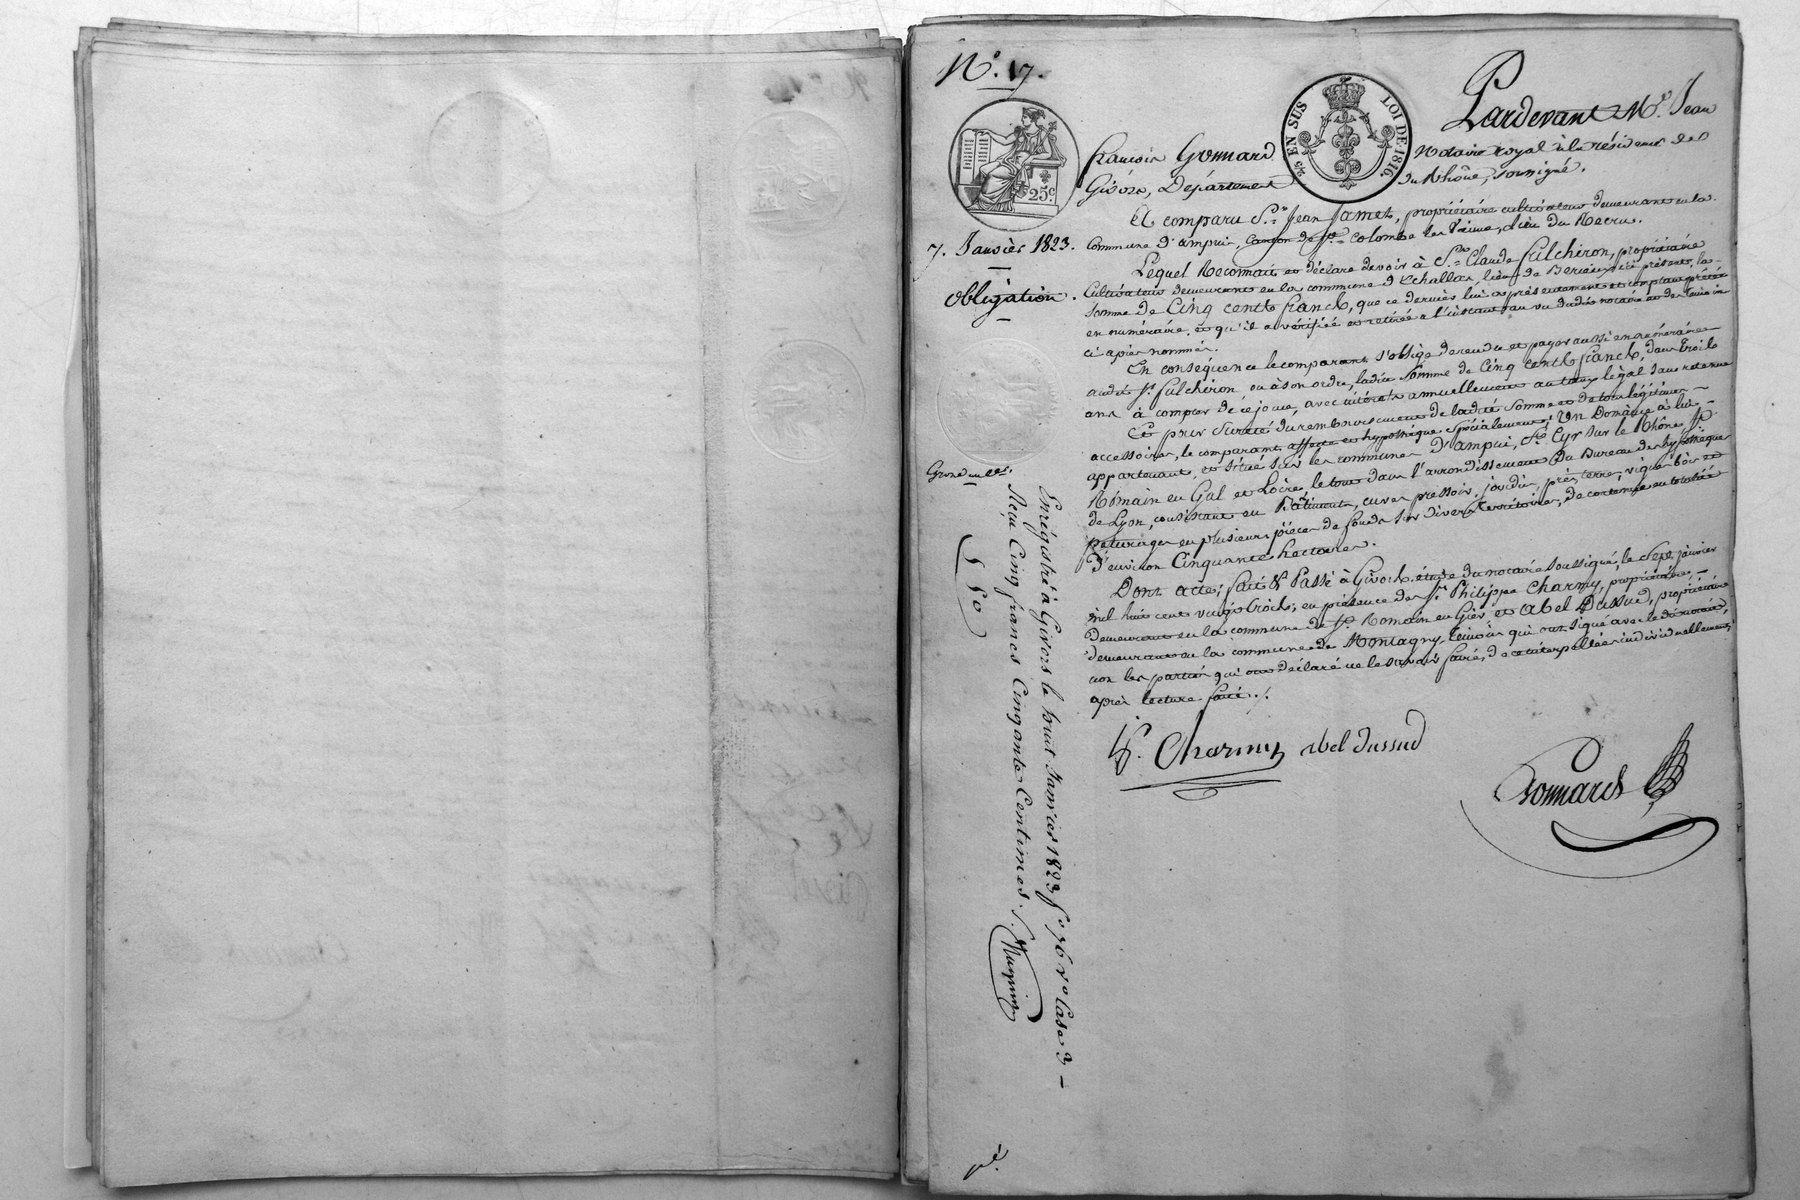 N.° 17.
25 EN SUS LOI DE 1816.
25.c
Pardevant M.e Jean
françois Gonnard Notaire royal à la résidence de
Givors, Département du Rhône, soussigné.
A comparu S.r Jean Jamet, propriétaire cultivateur demeurant en la
7. Janvier 1823.
Commune d'ampuis, Canton de S.te Colombe les Vienne, lieu du Recru.
Obligation.
Lequel Reconnait et déclare devoir à S.r Claude Fulchiron, propriétaire
Cultivateur demeurant en la commune d'Echallas, lieu de Berieux ici présent, la
somme de Cinq cents francs, que ce dernier lui a présentement et comptant prêtée
en numéraire, et qu'il a vérifiée et retirée a l'instant au vu dudit notaire et des témoins
ci après nommés.
En conséquence le comparant s'oblige de rendre et payer aussi en numéraire
audit S.r Fulchiron, ou à son ordre, ladite somme de Cinq cents francs, dans trois
ans à compter de ce jour, avec intérêts annuellement au taux légal sans retenue
Et pour sureté du remboursement de ladite somme et de tous légitimes
accessoires, le comparant affecte et hypothèque spécialement, Un Domaine à lui
appartenant, et situé sur les communes d'ampuis, S.t Cyr sur le Rhône S.t
Romain en Gal et Loire, le tout dans l'arrondissement du Bureau des hypothèques
de Lyon, consistant en Bâtiments, cuves pressoir, jardin, près, terre, vigne bois et
paturages en plusieurs pièces de fonds sur divers territoires, de contenue en totalité
d'environ Cinquante hectares.
Grosse
5 50
Dont acte, fait & Passé à Givors, étude du notaire soussigné, le Sept janvier
mil huit cent vingt trois, en présence des S.rs Philippe Charmy, propriétaire
demeurant en la commune de S.t Romain en Gier et Abel Dussud, propriétaire
demeurant en la commune de Montagny, témoins qui ont signé avec le dit notaire,
non les parties qui ont déclaré ne le savoir faire, de ce interpellées individuellement,
après lecture faite./.
Charmy abel dussud
Gonnard
Enrégistré à Givors le huit Janvier 1823 f.° 76 v° Case 3
Reçu Cinq francs Cinquante Centimes.